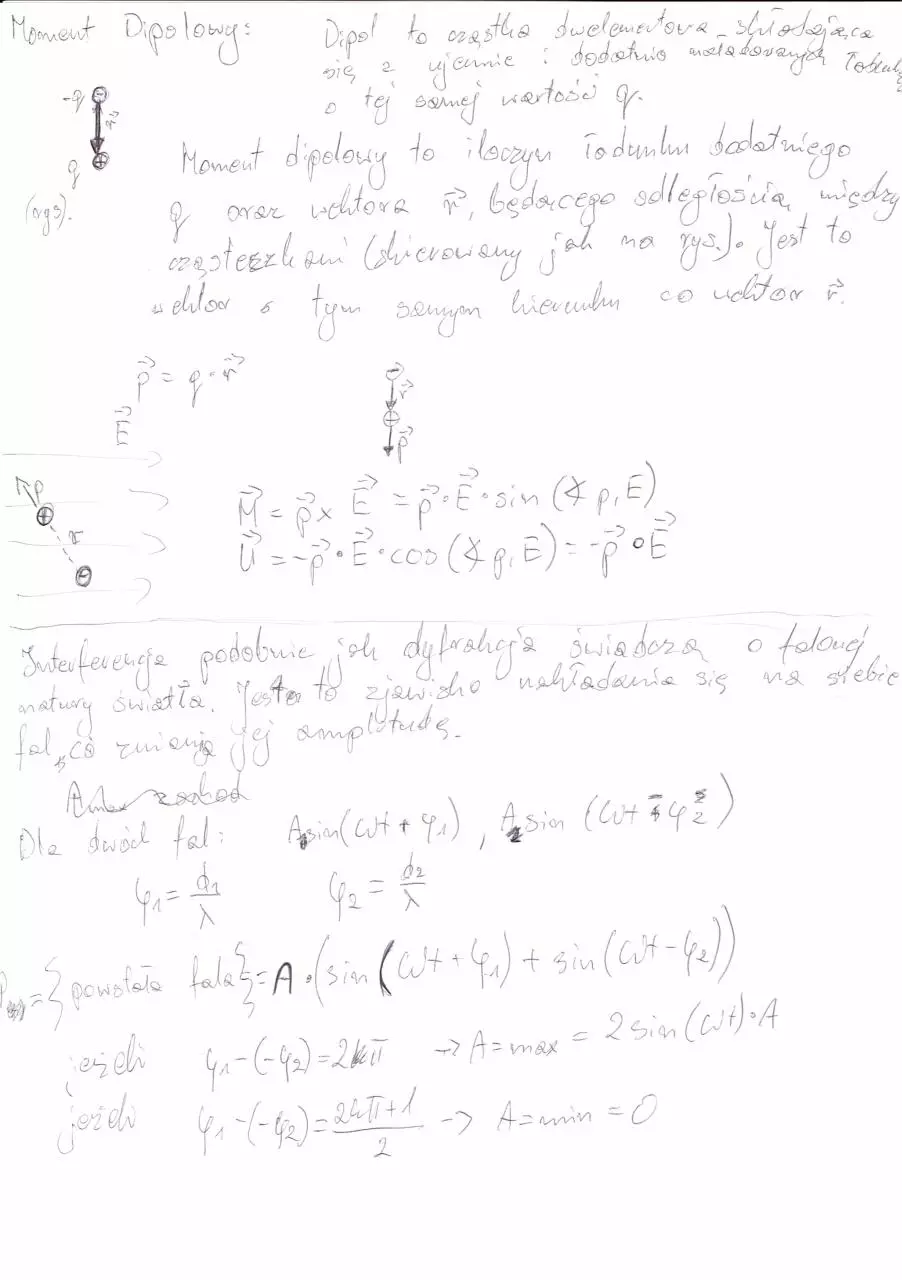 Moment Dipolowy: Dipol to cząstka dwelementowa składająca
się z ujemnie i dodatnio naładowanych
o tej samej wartości q.
-q
q
(rys).
Moment dipolowy to iloczyn ładunku dodatniego
q oraz wektora r⃗, będącego odległością między
cząsteczkami (skierowany jak na rys.). Jest to
wektor o tym samym kierunku co wektor r⃗.
p⃗ = q · r⃗
r⃗
p⃗
E⃗
p
r
M⃗ = p⃗ × E⃗ = p⃗ · E⃗ · sin (∢ p, E)
U⃗ = -p⃗ · E⃗ · cos (∢ p, E) = -p⃗ ∘ E⃗
Interferencja podobnie jak dyfrakcja świadczą o falowej
natury światła. Jest to zjawisko nakładania się na siebie
fal, co zmienia jej amplitudę.
Dla dwóch fal: A₁sin(ωt + φ1), A₂sin (ωt - φ2)
φ1 = d1/λ φ2 = d2/λ
= {powstała fala} = A · (sin (ωt + φ1) + sin (ωt - φ2))
jeżeli φ1 - (-φ2) = 2kπ → A = max = 2 sin (ωt) · A
jeżeli φ1 - (-φ2) = (2kπ + 1)/2 → A = min = 0